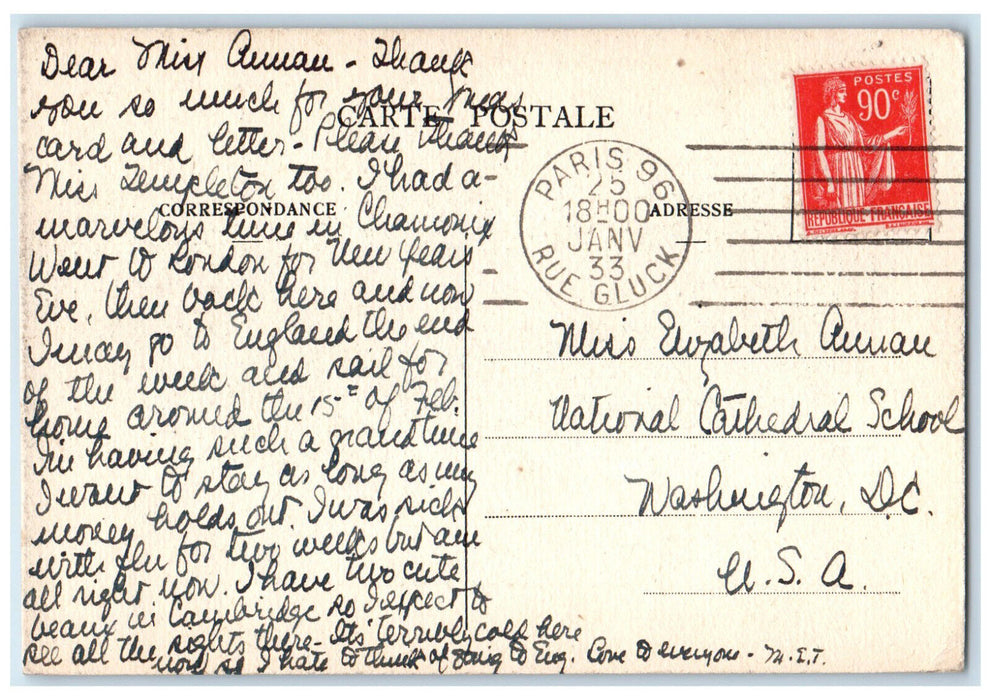 Dear Miss Annan - Thank
you so much for your Xmas
card and letter - Please thank
Miss Templeton too. I had a
marvelous time in Chamonix
Went to London for New Years
Eve, then back here and now
I may go to England the end
of the week and sail for
home around the 15th of Feb.
I'm having such a grand time
I want to stay as long as my
money holds out. I was sick
with flu for two weeks but am
all right now. I have two cute
beaux in Cambridge so I expect to
see all the sights there - Its terribly cold here
now so I hate to think of going to Eng. Love to everyone - M.E.T.
CARTE POSTALE
CORRESPONDANCE
ADRESSE
PARIS 96
25
18H00
JANV
33
RUE GLUCK
POSTES
90c
REPUBLIQUE FRANÇAISE
Miss Elizabeth Annan
National Cathedral School
Washington, D.C.
U.S.A.